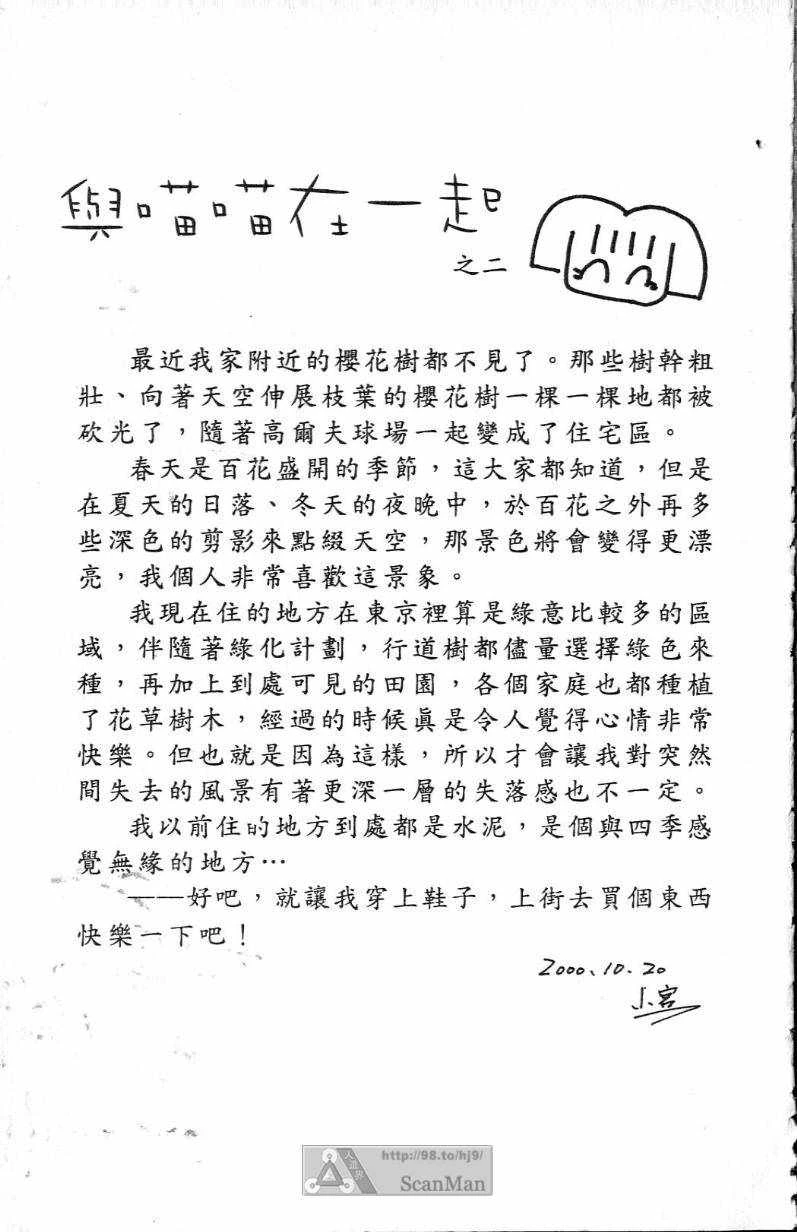 與喵喵在一起
之二
最近我家附近的櫻花樹都不見了。那些樹幹粗
壯、向著天空伸展枝葉的櫻花樹一棵一棵地都被
砍光了，隨著高爾夫球場一起變成了住宅區。
春天是百花盛開的季節，這大家都知道，但是
在夏天的日落、冬天的夜晚中，於百花之外再多
些深色的剪影來點綴天空，那景色將會變得更漂
亮，我個人非常喜歡這景象。
我現在住的地方在東京裡算是綠意比較多的區
域，伴隨著綠化計劃，行道樹都儘量選擇綠色來
種，再加上到處可見的田園，各個家庭也都種植
了花草樹木，經過的時候真是令人覺得心情非常
快樂。但也就是因為這樣，所以才會讓我對突然
間失去的風景有著更深一層的失落感也不一定。
我以前住的地方到處都是水泥，是個與四季感
覺無緣的地方…
——好吧，就讓我穿上鞋子，上街去買個東西
快樂一下吧！
2000、10.20
小宮
http://98.to/hj9/
ScanMan